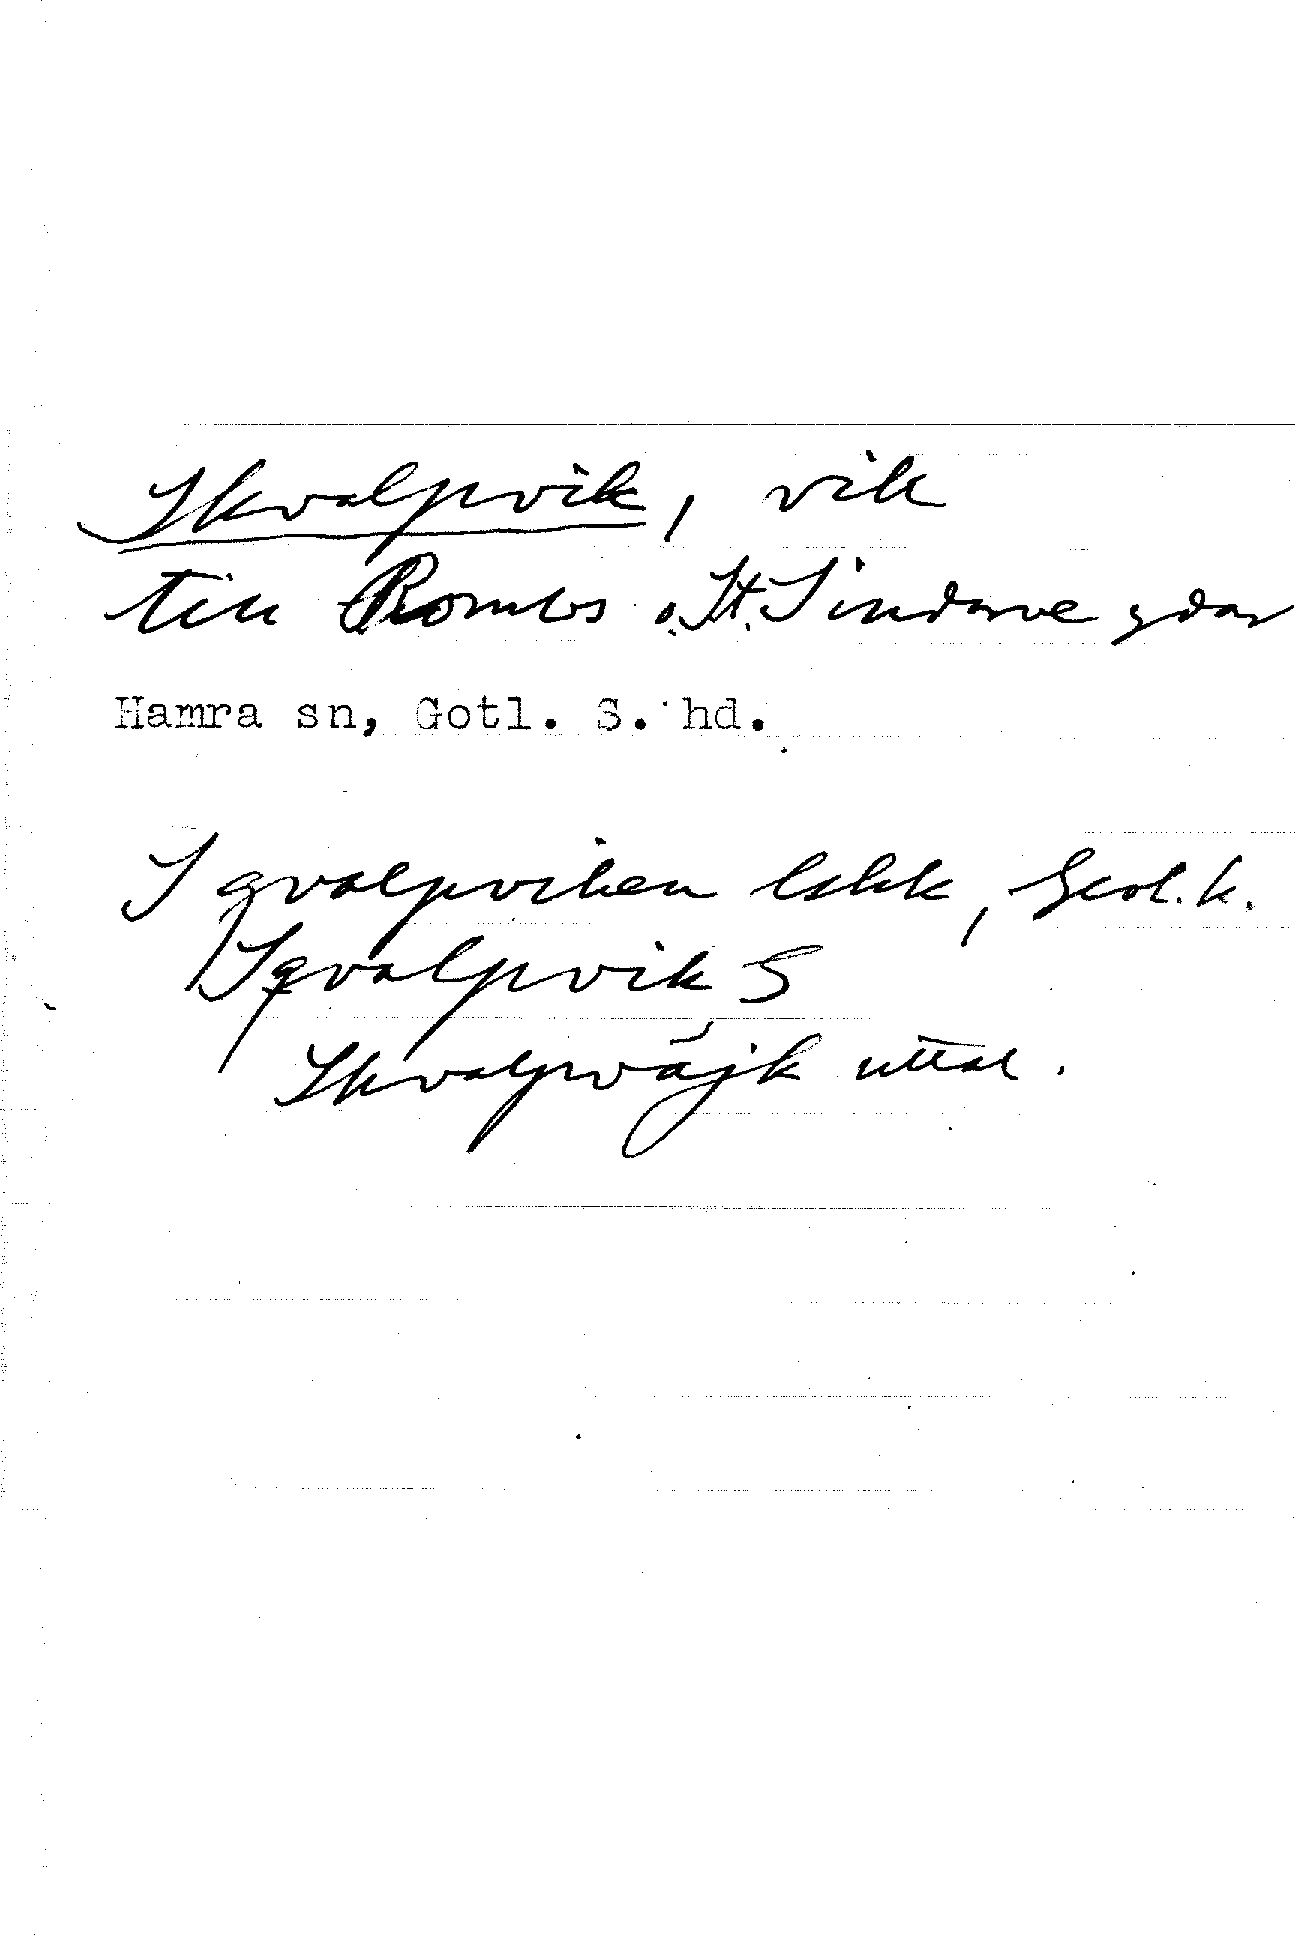 Skvalpvik, vik
till Rombs o. St. Sindarve gdar
Hamra sn, Gotl. S. hd.
Sqvalpviken Lskk, Geol. k.
Sqvalpvik S
Skvalpvājk uttal.